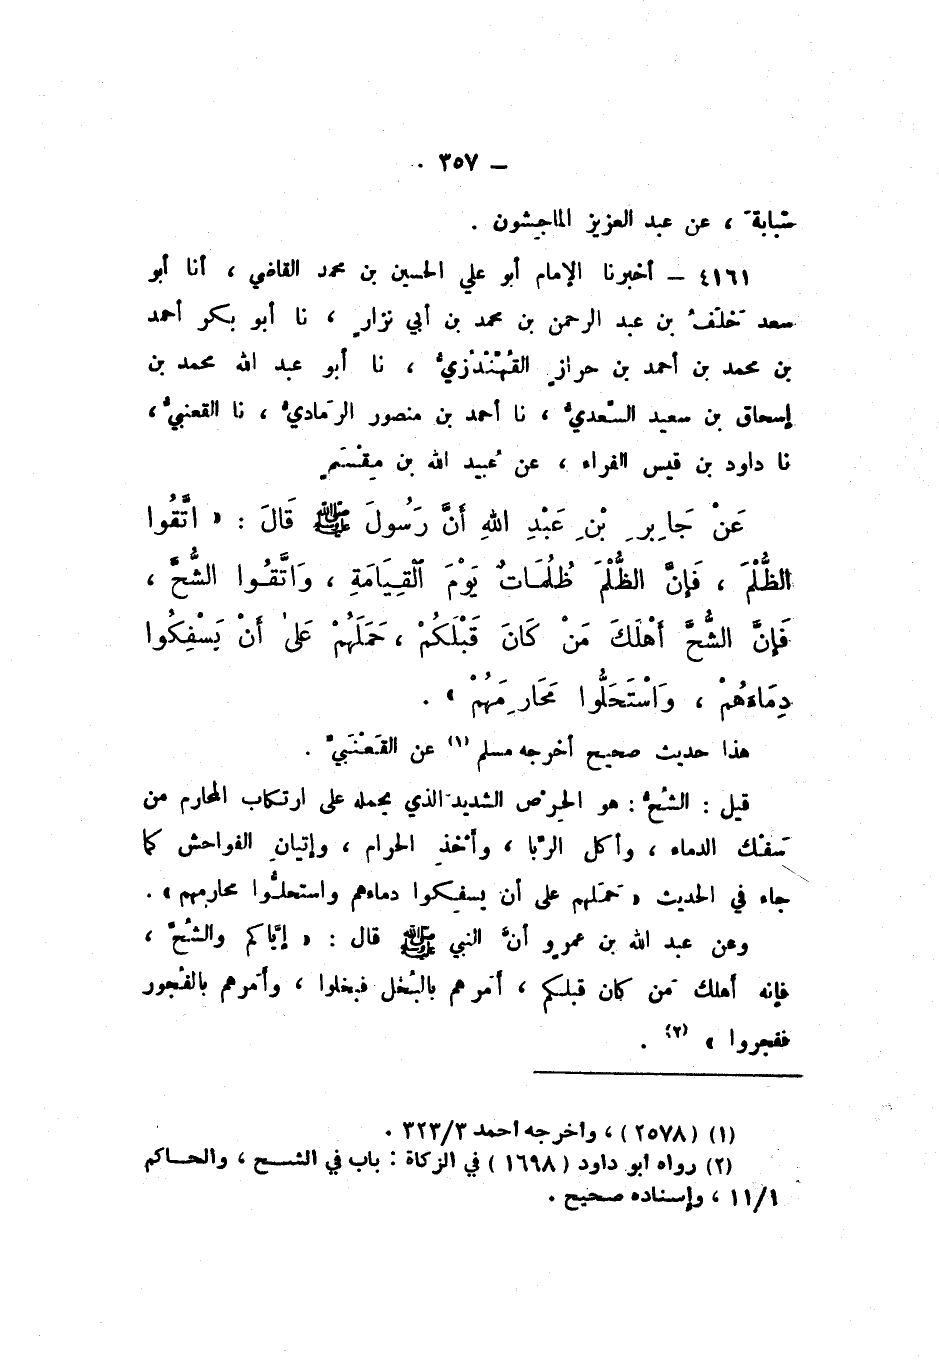 ـ ٣٥٧ ـ
شَبابةَ ، عن عبد العزيز الماجِشون .
٤١٦١ ـ أخبرنا الإمام أبو علي الحسين بن محمد القاضي ، أنا أبو
سعد خَلَفُ بن عبد الرحمن بن محمد بن أبي نزارٍ ، نا أبو بكر أحمد
بن محمد بن أحمد بن حرازٍ القُهُنْدُزيُّ ، نا أبو عبد الله محمد بن
إسحاق بن سعيد السَّعديُّ ، نا أحمد بن منصور الرَّماديُّ ، نا القعنبيُّ ،
نا داود بن قيس الفراء ، عن عُبيد الله بن مِقْسَمٍ
عَنْ جَابِرِ بْنِ عَبْدِ اللهِ أَنَّ رَسُولَ ﷺ قَالَ : « اتَّقُوا
الظُّلْمَ ، فَإِنَّ الظُّلْمَ ظُلُمَاتٌ يَوْمَ الْقِيَامَةِ ، وَاتَّقُوا الشُّحَّ ،
فَإِنَّ الشُّحَّ أَهْلَكَ مَنْ كَانَ قَبْلَكُمْ ، حَمَلَهُمْ عَلىٰ أَنْ يَسْفِكُوا
دِمَاءَهُمْ ، وَاسْتَحَلُّوا مَحَارِمَهُمْ » .
هذا حديث صحيح أخرجه مسلم (١) عن القَعْنَبيِّ .
قيل : الشُّحُّ : هو الحِرْص الشديد الذي يحمله على ارتكاب المحارم من
سَفْك الدماء ، وأكل الرِّبا ، وأَخْذِ الحرام ، وإتيانِ الفواحش كما
جاء في الحديث « حَمَلَهم على أن يسفِكوا دماءهم واستحلُّوا محارِمهم » .
وعن عبد الله بن عمرٍو أنَّ النبي ﷺ قال : « إيَّاكم والشُّحَّ ،
فإنه أهلك مَن كان قبلكم ، أمَرهم بالبُخل فبخلوا ، وأمَرهم بالفُجور
ففجروا » (٢) .
(١) (٢٥٧٨) ، وأخرجه أحمد ٣٢٣/٣ .
(٢) رواه أبو داود (١٦٩٨) في الزكاة : باب في الشح ، والحاكم
١١/١ ، وإسناده صحيح .